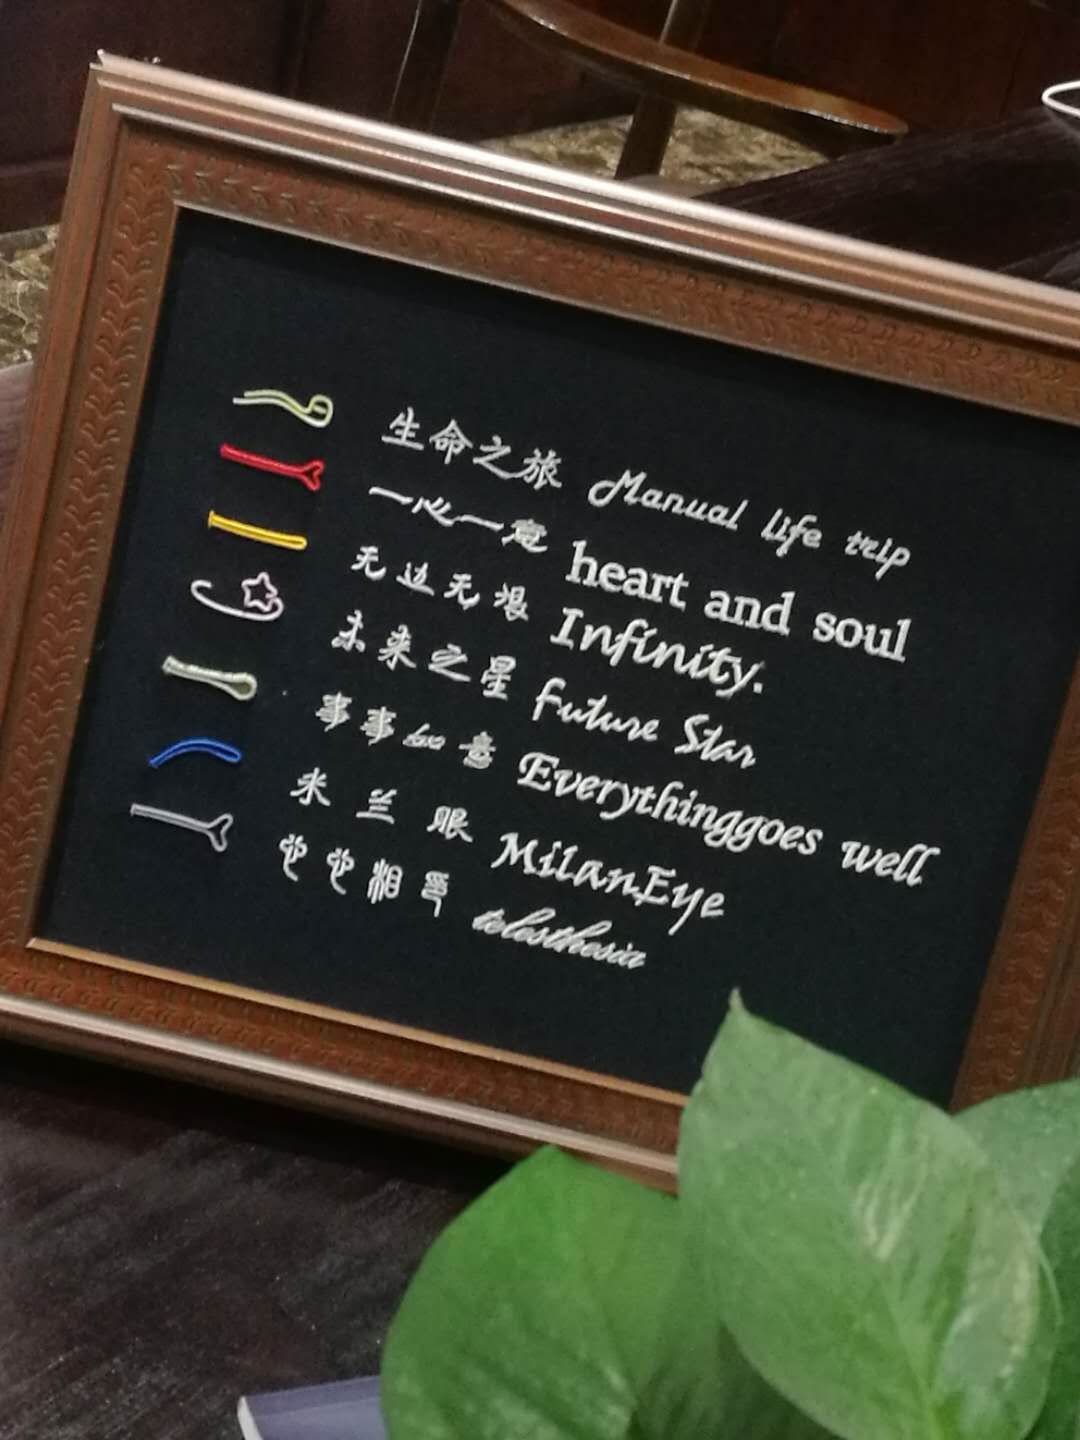 生命之旅 Manual life trip
一心一意 heart and soul
无边无垠 Infinity.
未来之星 Future Star
事事如意 Everythinggoes well
米兰眼 MilanEye
心心相印 telesthesia